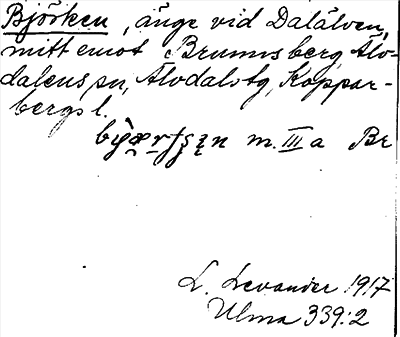 Björken, änge vid Dalälven,
mitt emot Brunnsberg, Älv-
dalens sn, Älvdals tg, Koppar-
bergs l.
m. III a Br
L. Levander 1917
Ulma 339:2